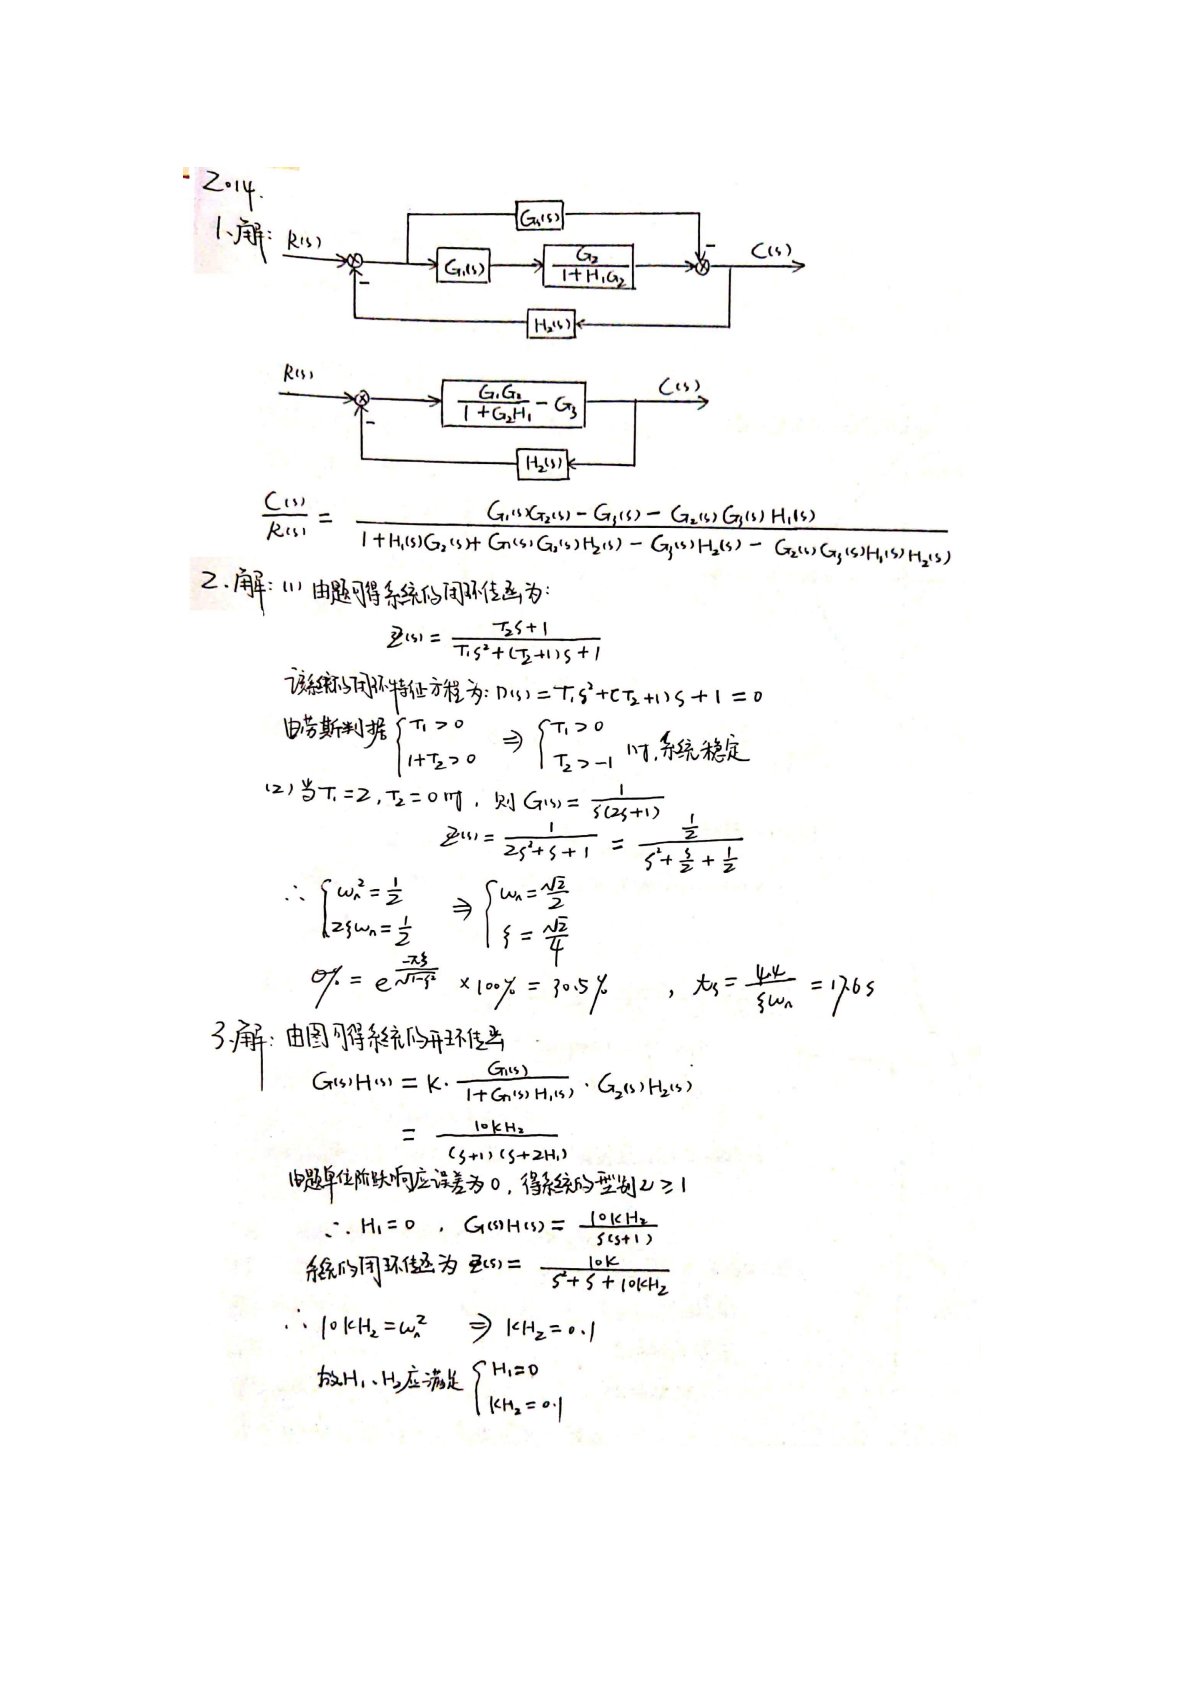 2014.
1、解：
R(s) G₃(s) − C(s)
G₁(s) G₂/(1+H₁G₂)
− H₂(s)
R(s) G₁G₂/(1+G₂H₁) − G₃ C(s)
− H₂(s)
C(s)/R(s) = (G₁(s)G₂(s) − G₃(s) − G₂(s)G₃(s)H₁(s))/(1+H₁(s)G₂(s)+G₁(s)G₂(s)H₂(s) − G₃(s)H₂(s) − G₂(s)G₃(s)H₁(s)H₂(s))
2.解：(1) 由题可得系统的闭环传函为：
Φ(s) = (T₂s+1)/(T₁s²+(T₂+1)s+1)
该系统的闭环特征方程为：D(s) = T₁s²+(T₂+1)s+1=0
由劳斯判据 {T₁>0, 1+T₂>0 ⇒ {T₁>0, T₂>-1 时，系统稳定
(2) 当T₁=2, T₂=0时，则 G(s) = 1/(s(2s+1))
Φ(s) = 1/(2s²+s+1) = (1/2)/(s²+s/2+1/2)
∴ {ωₙ²=1/2, 2ξωₙ=1/2 ⇒ {ωₙ=√2/2, ξ=√2/4
σ% = e^(-πξ/√(1-ξ²)) ×100% = 30.5%， tₛ = 4.4/(ξωₙ) = 17.6s
3.解：由图可得系统的开环传函
G(s)H(s) = K · G₁(s)/(1+G₁(s)H₁(s)) · G₂(s)H₂(s)
= 10KH₂/((s+1)(s+2H₁))
由题单位阶跃响应误差为0，得系统的型别ν≥1
∴ H₁=0，G(s)H(s) = 10KH₂/(s(s+1))
系统的闭环传函为 Φ(s) = 10K/(s²+s+10KH₂)
∴ 10KH₂=ωₙ² ⇒ KH₂=0.1
故H₁、H₂应满足 {H₁=0, KH₂=0.1